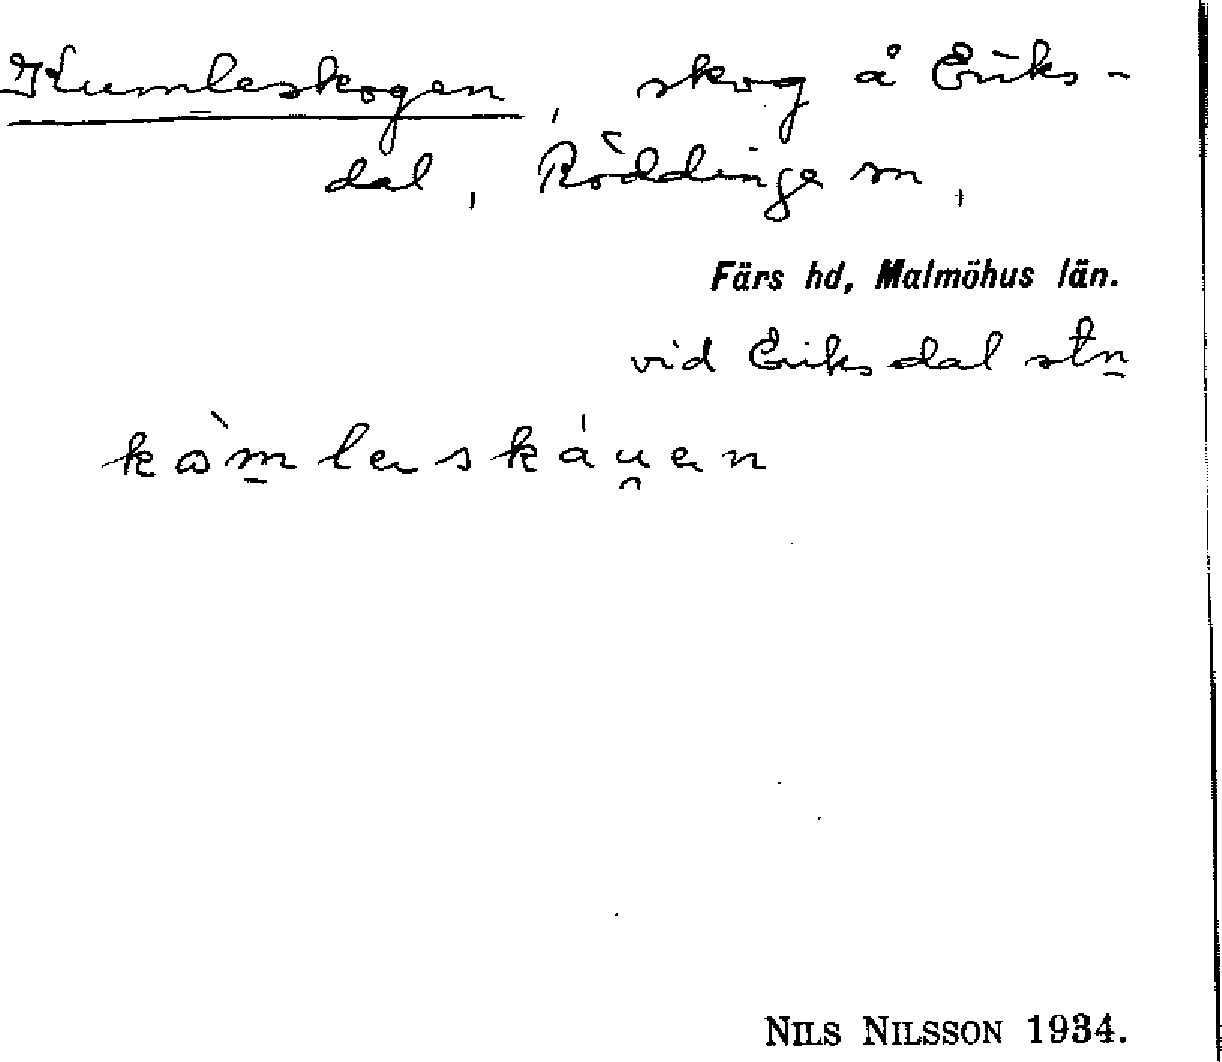 Kumleskogen, skog å Eriks-
dal, Röddinge sn,
Färs hd, Malmöhus län.
vid Eriksdal stn
NILS NILSSON 1934.